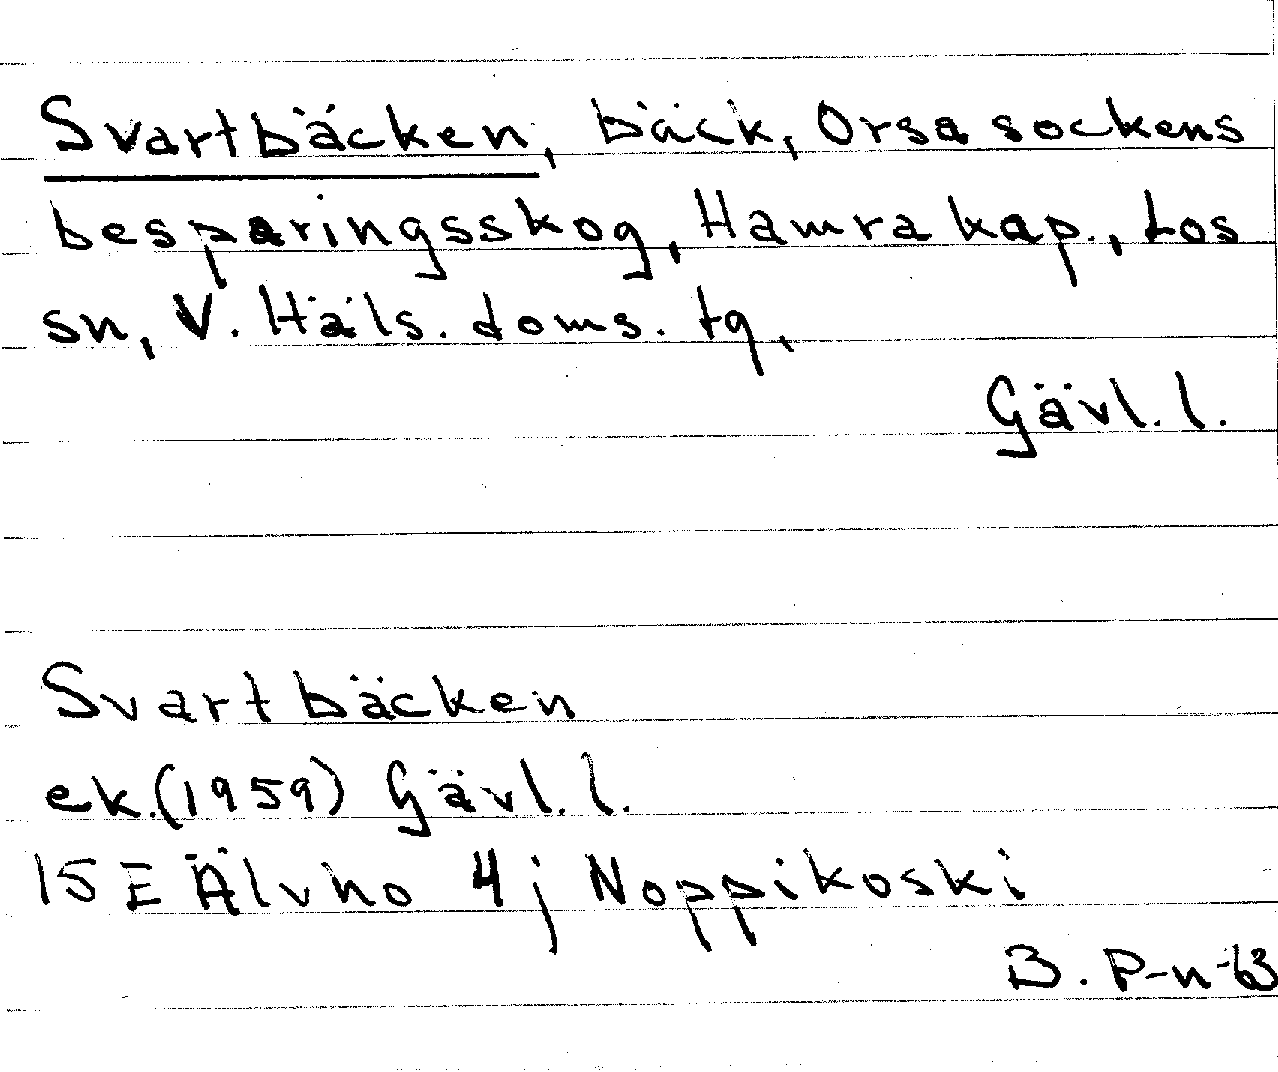 Svartbäcken, bäck, Orsa sockens
besparingsskog, Hamra kap., Los
sn, V. Häls. doms. tg,
Gävl. l.
Svartbäcken
ek.(1959) Gävl. l.
15 E Älvho 4j Noppikoski
B. P-n-63